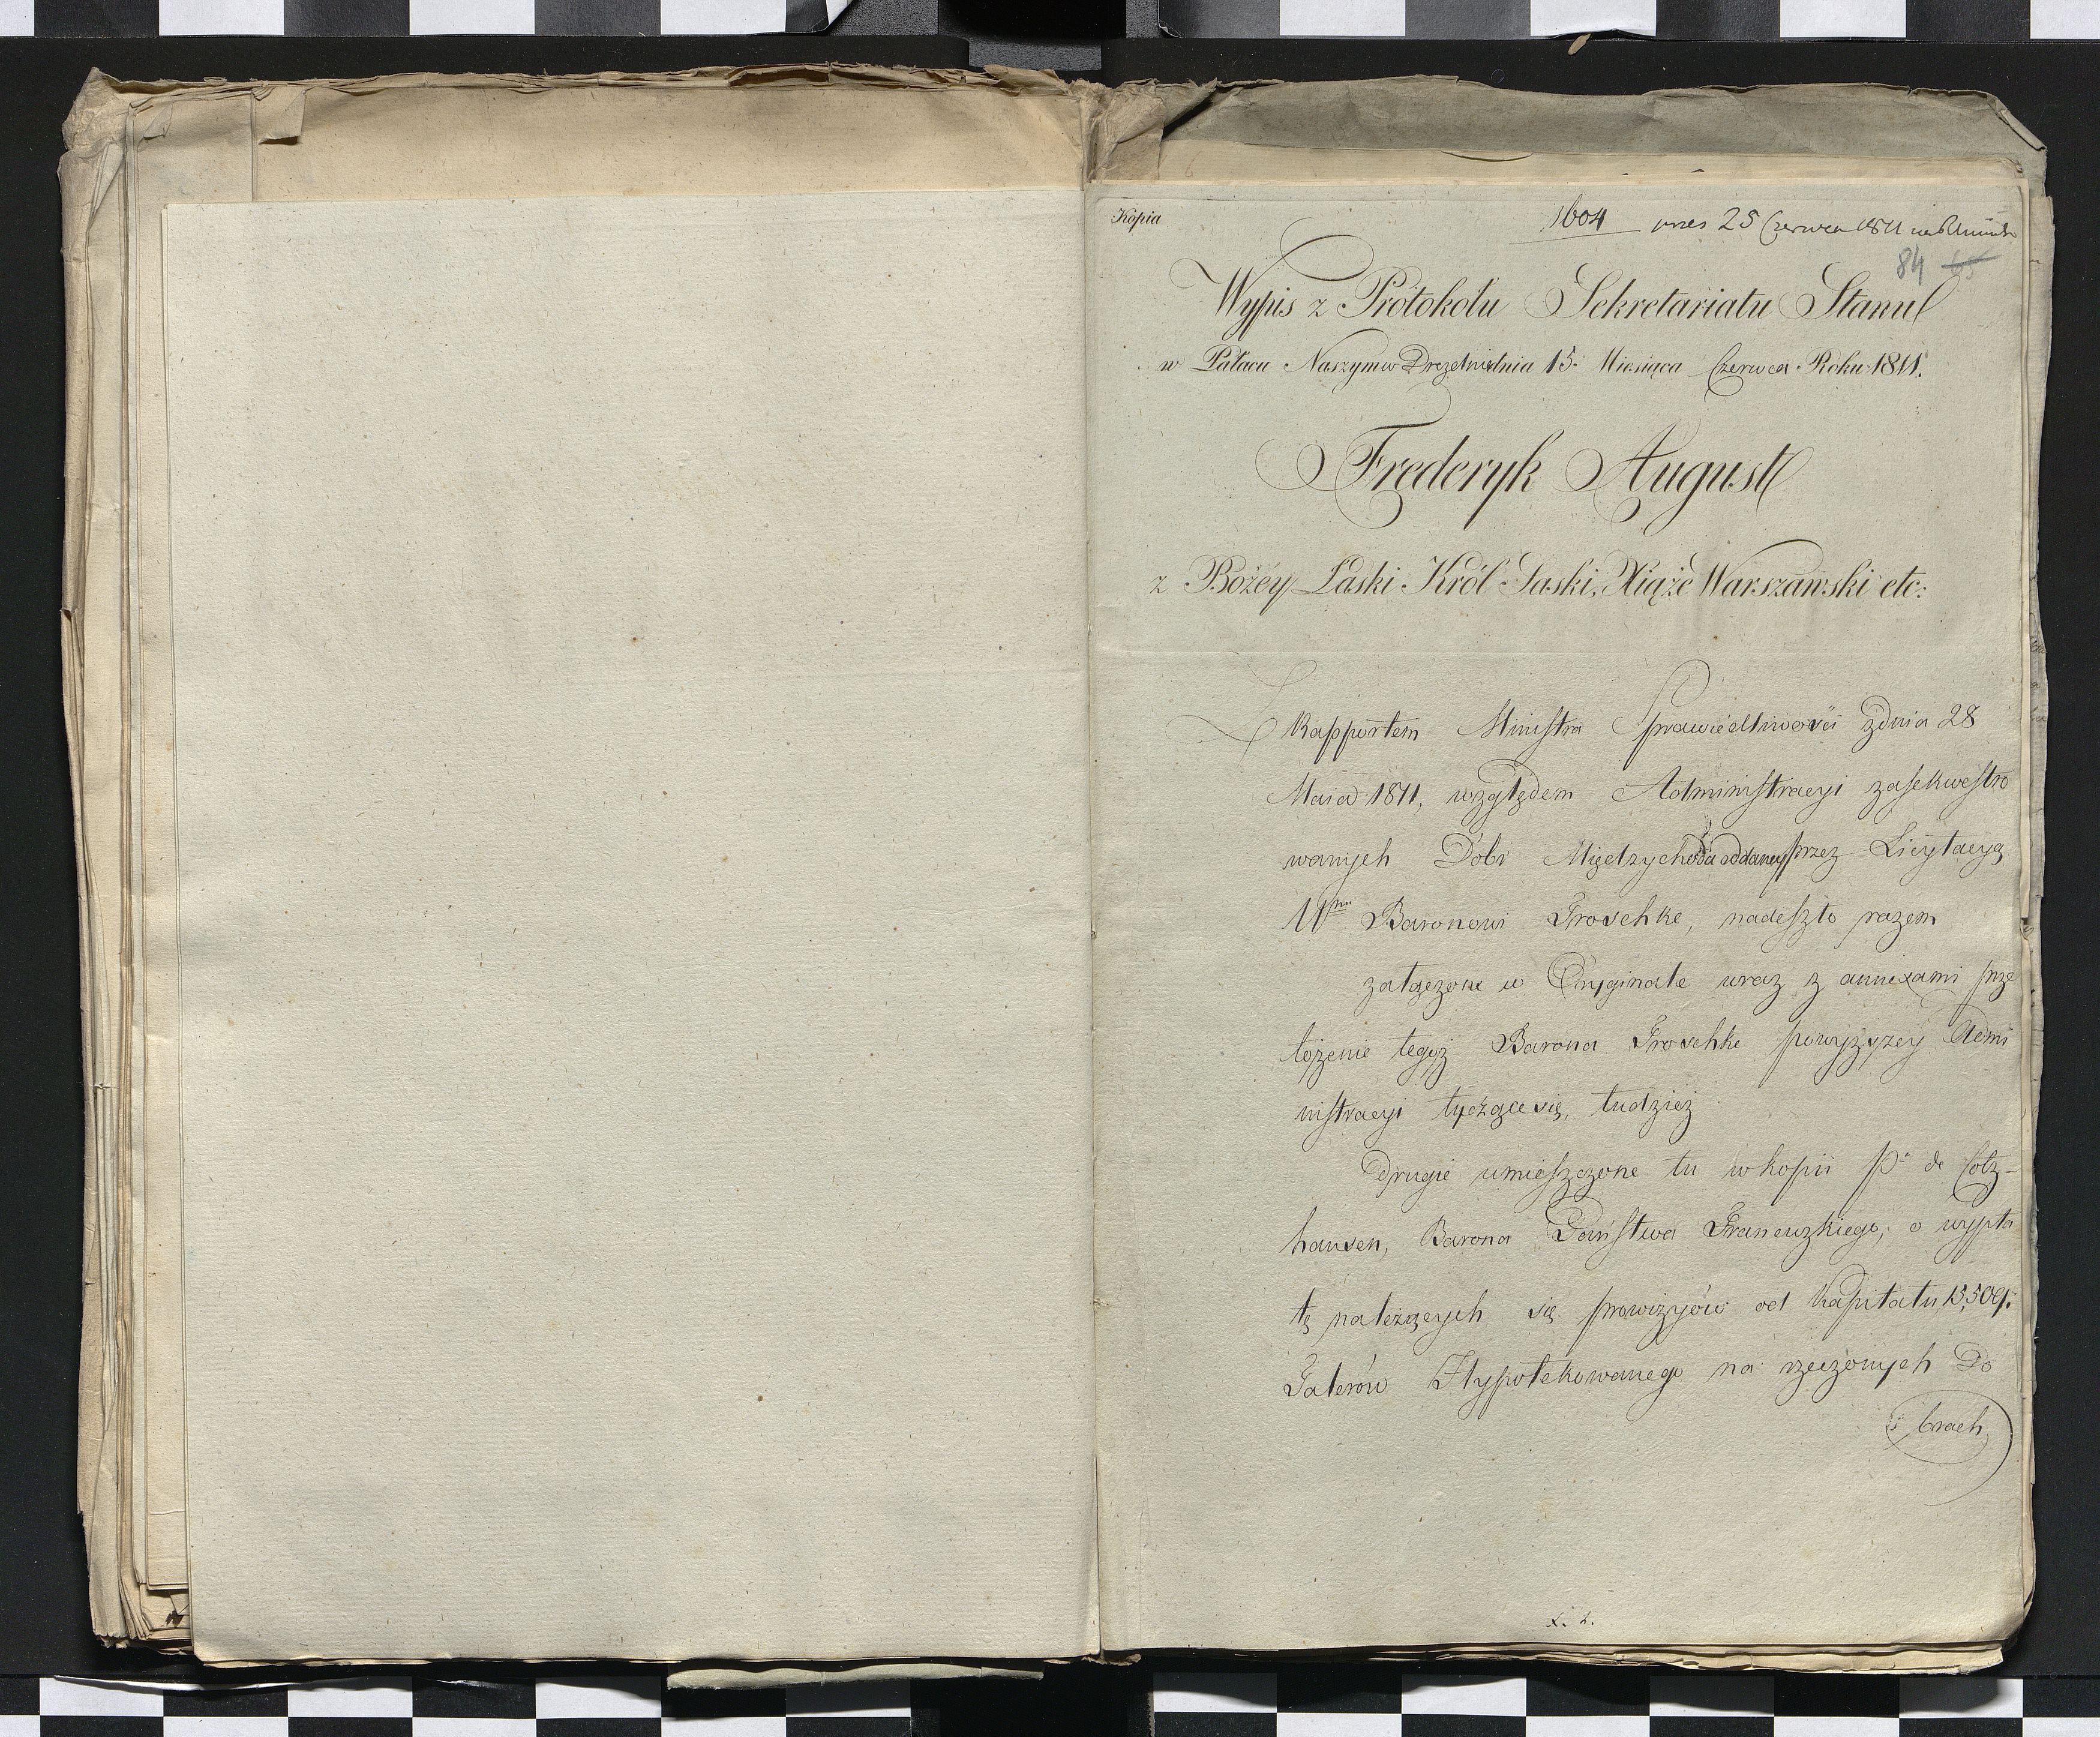 Kopia
1604 25 Czerwca 1811
84 65
Wypis z Protokołu Sekretariatu Stanu
w Pałacu Naszym w Drezdnie dnia 15. Miesiąca Czerwca Roku 1811.
Frederyk August
z Bożéy Łaski Król Saski, Xiąże Warszawski etc:
Z Rapportem Ministra Sprawiedliwości z dnia 28
Maia 1811, względem Administracyi zasekwestro
wanych Dóbr Międzychoda oddanych przez Licytacyą
Ur. Baronowi Troschke, nadeszło razem
załączone w Oryginale wraz z annexami prze
łożenie tegoż Barona Troschke powyższey Admi
nistracyi tyczące się, tudzież
Drugie umieszczone tu w kopii P. de Cotz-
hausen, Barona Państwa Francuzkiego, o wypła
tę należących się prowizyów od Kapitału 13,500.
Talerów Hypotekowanego na rzeczonych Do
brach